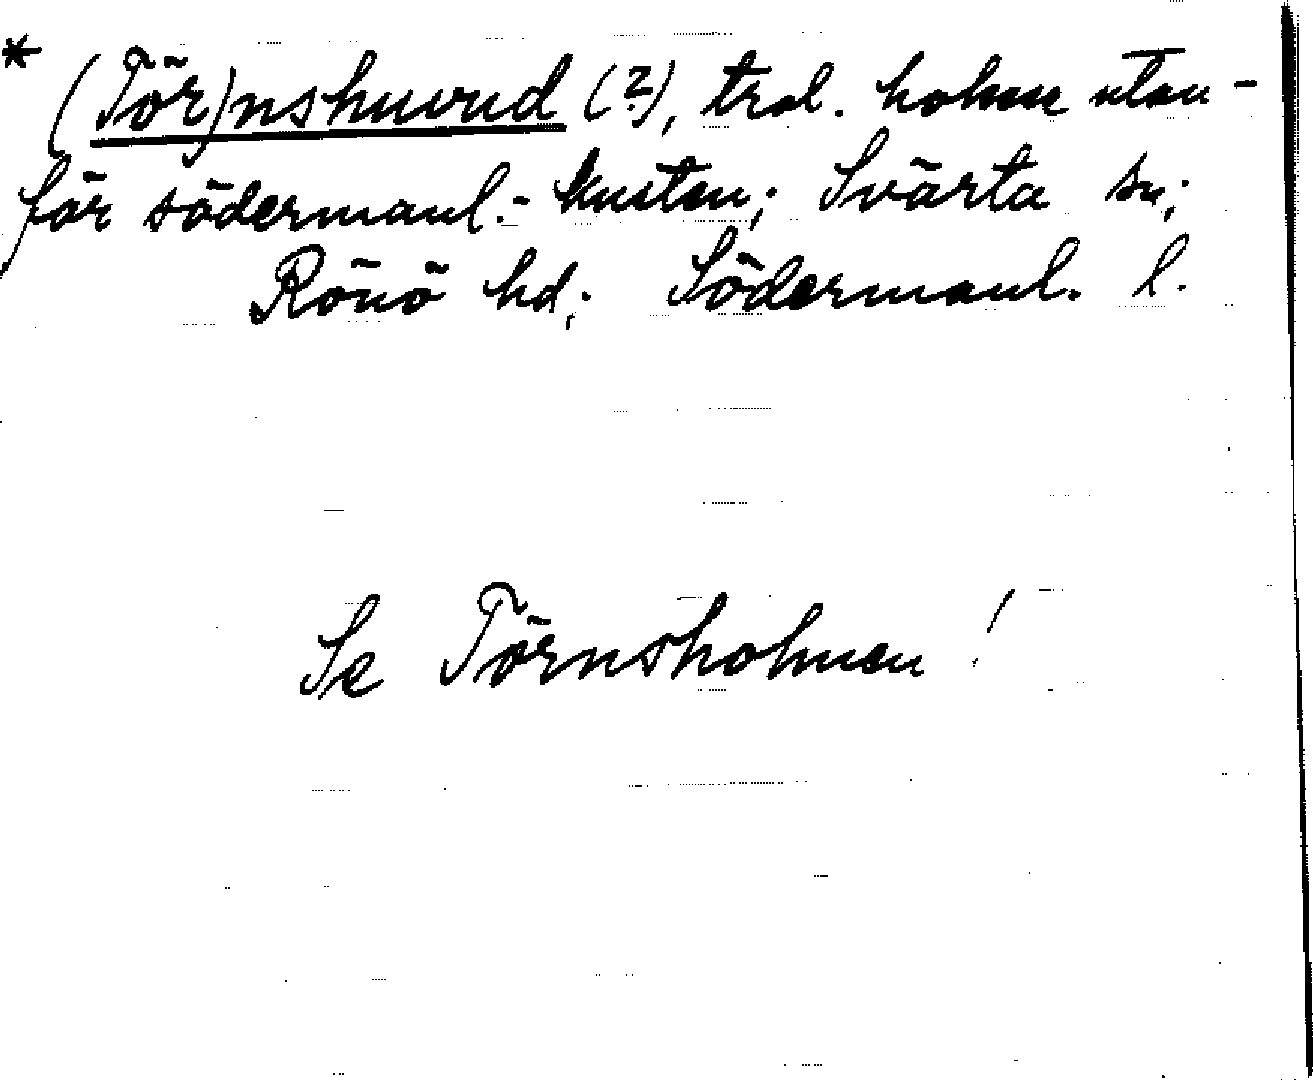 * (Tör)nshuvud (?), trol. holme utan-
för södermanl.- kusten; Svärta sn;
Rönö hd; Södermanl. l.
Se Törnsholmen!